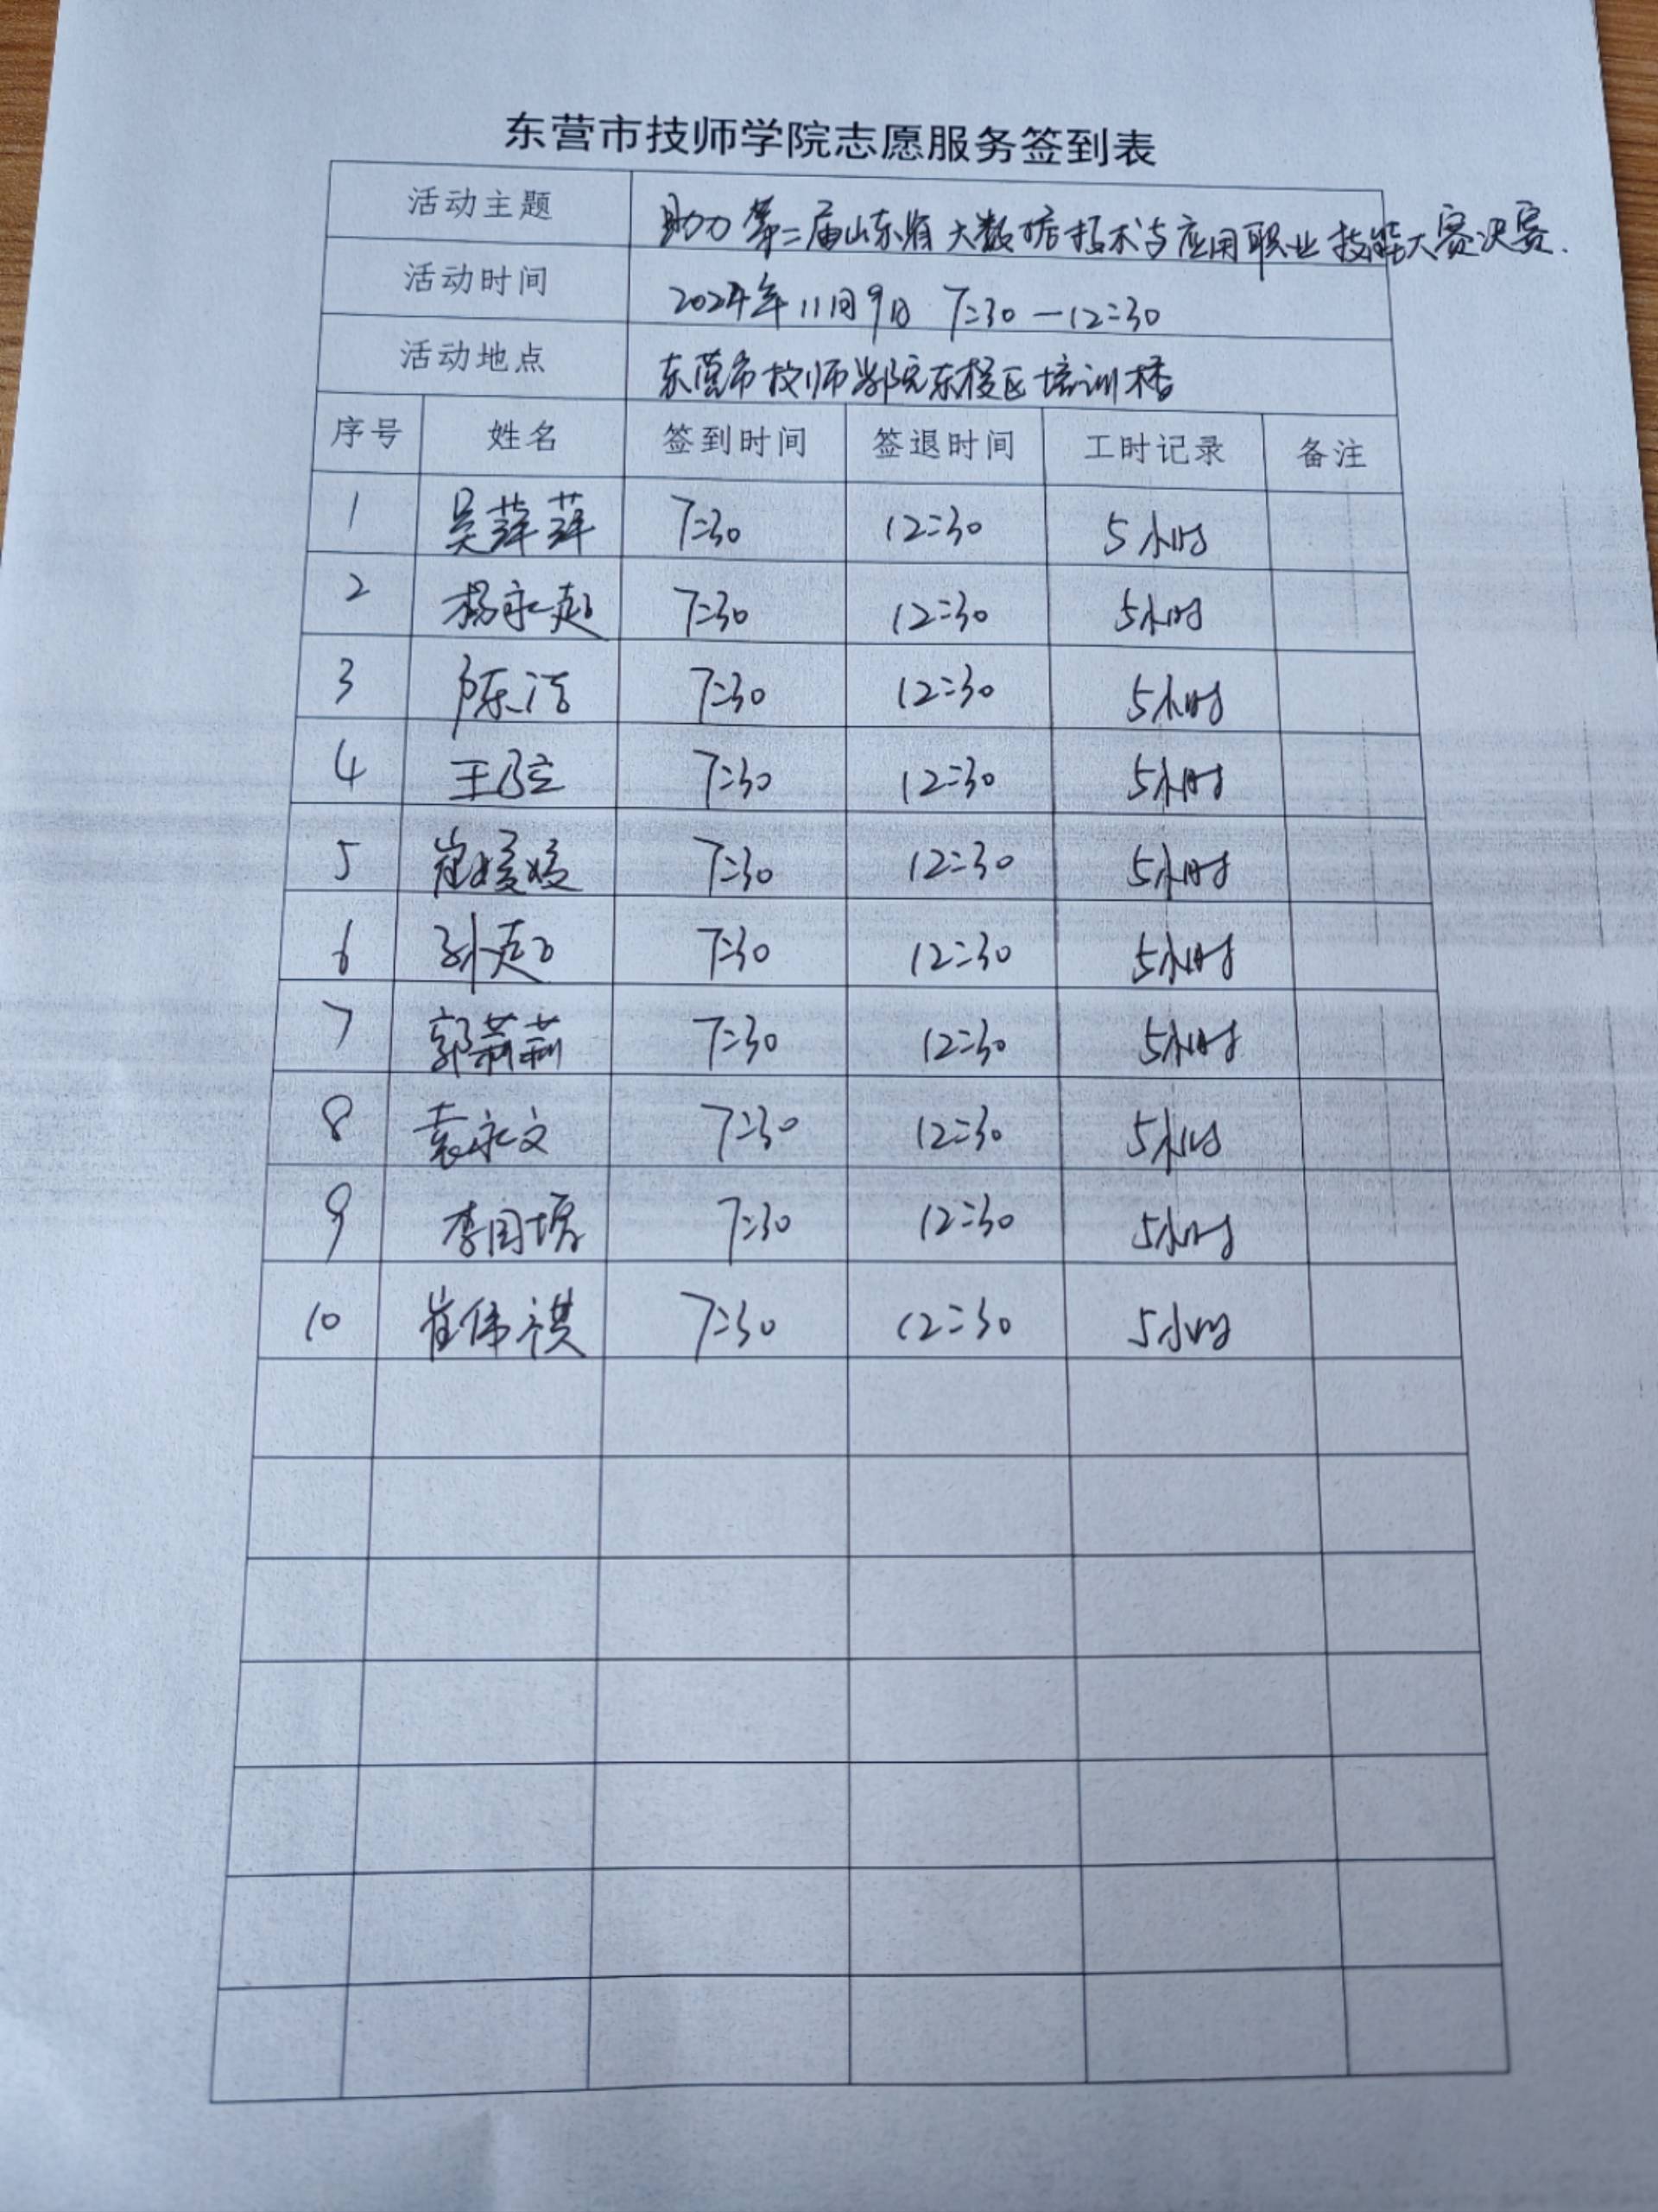 东营市技师学院志愿服务签到表
活动主题 助力第二届山东省大数据技术与应用职业技能大赛决赛.
活动时间 2024年11月9日 7:30—12:30
活动地点 东营市技师学院东校区培训楼
序号 姓名 签到时间 签退时间 工时记录 备注
1 吴萍萍 7:30 12:30 5小时
2 杨永超 7:30 12:30 5小时
3 陈洁 7:30 12:30 5小时
4 王 7:30 12:30 5小时
5 崔媛媛 7:30 12:30 5小时
6 孙超 7:30 12:30 5小时
7 郭莉莉 7:30 12:30 5小时
8 袁永文 7:30 12:30 5小时
9 李国 7:30 12:30 5小时
10 崔伟祺 7:30 12:30 5小时